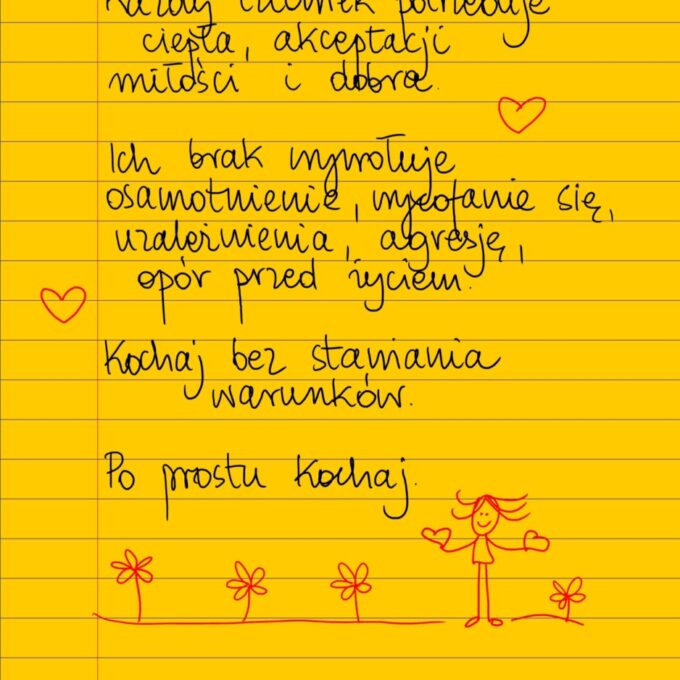 Każdy człowiek potrzebuje
ciepła, akceptacji
miłości i dobra.
Ich brak wywołuje
osamotnienie, wycofanie się,
uzależnienia, agresję,
opór przed życiem.
Kochaj bez stawiania
warunków.
Po prostu kochaj.